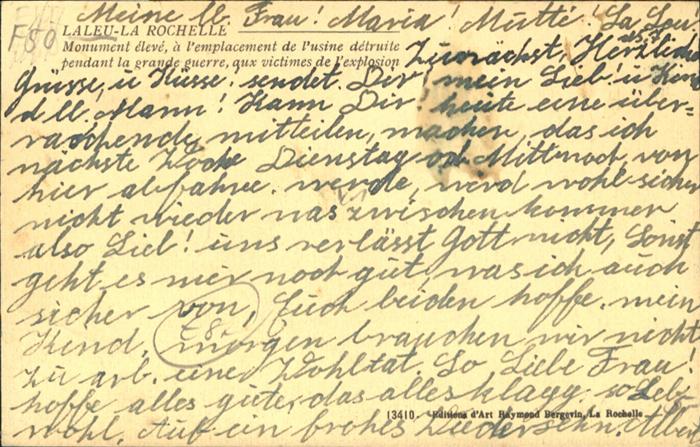 Meine lb. Frau! Maria! Mutté! La Leu
F50
LALEU-LA ROCHELLE
Monument élevé, à l'emplacement de l'usine détruite
pendant la grande guerre, aux victimes de l'explosion
Zunächst, Herzliche
Grüsse, u Küsse! sendet. Dir, mein Lieb! u
d ll. Mann! Kann Dir heute eine über-
raschende, mitteilen, machen, das ich
nächste Woche Dienstag od Mittwoch, von
hier abfahre. werde, werd wohl sicher
nicht wieder was zwischen kommen
also Lieb! uns verlässt Gott nicht, Sonst
geht es mir noch gut, was ich auch
sicher von, Euch beiden hoffe. mein
Kind, morgen brauchen wir nicht
zu arb. einer Wohltat. So Liebe Frau!
hoffe alles gute, das alles klapp. so Leb-
13410. Editions d'Art Raymond Bergevin, La Rochelle
wohl. Auf ein frohes Wiedersehn.